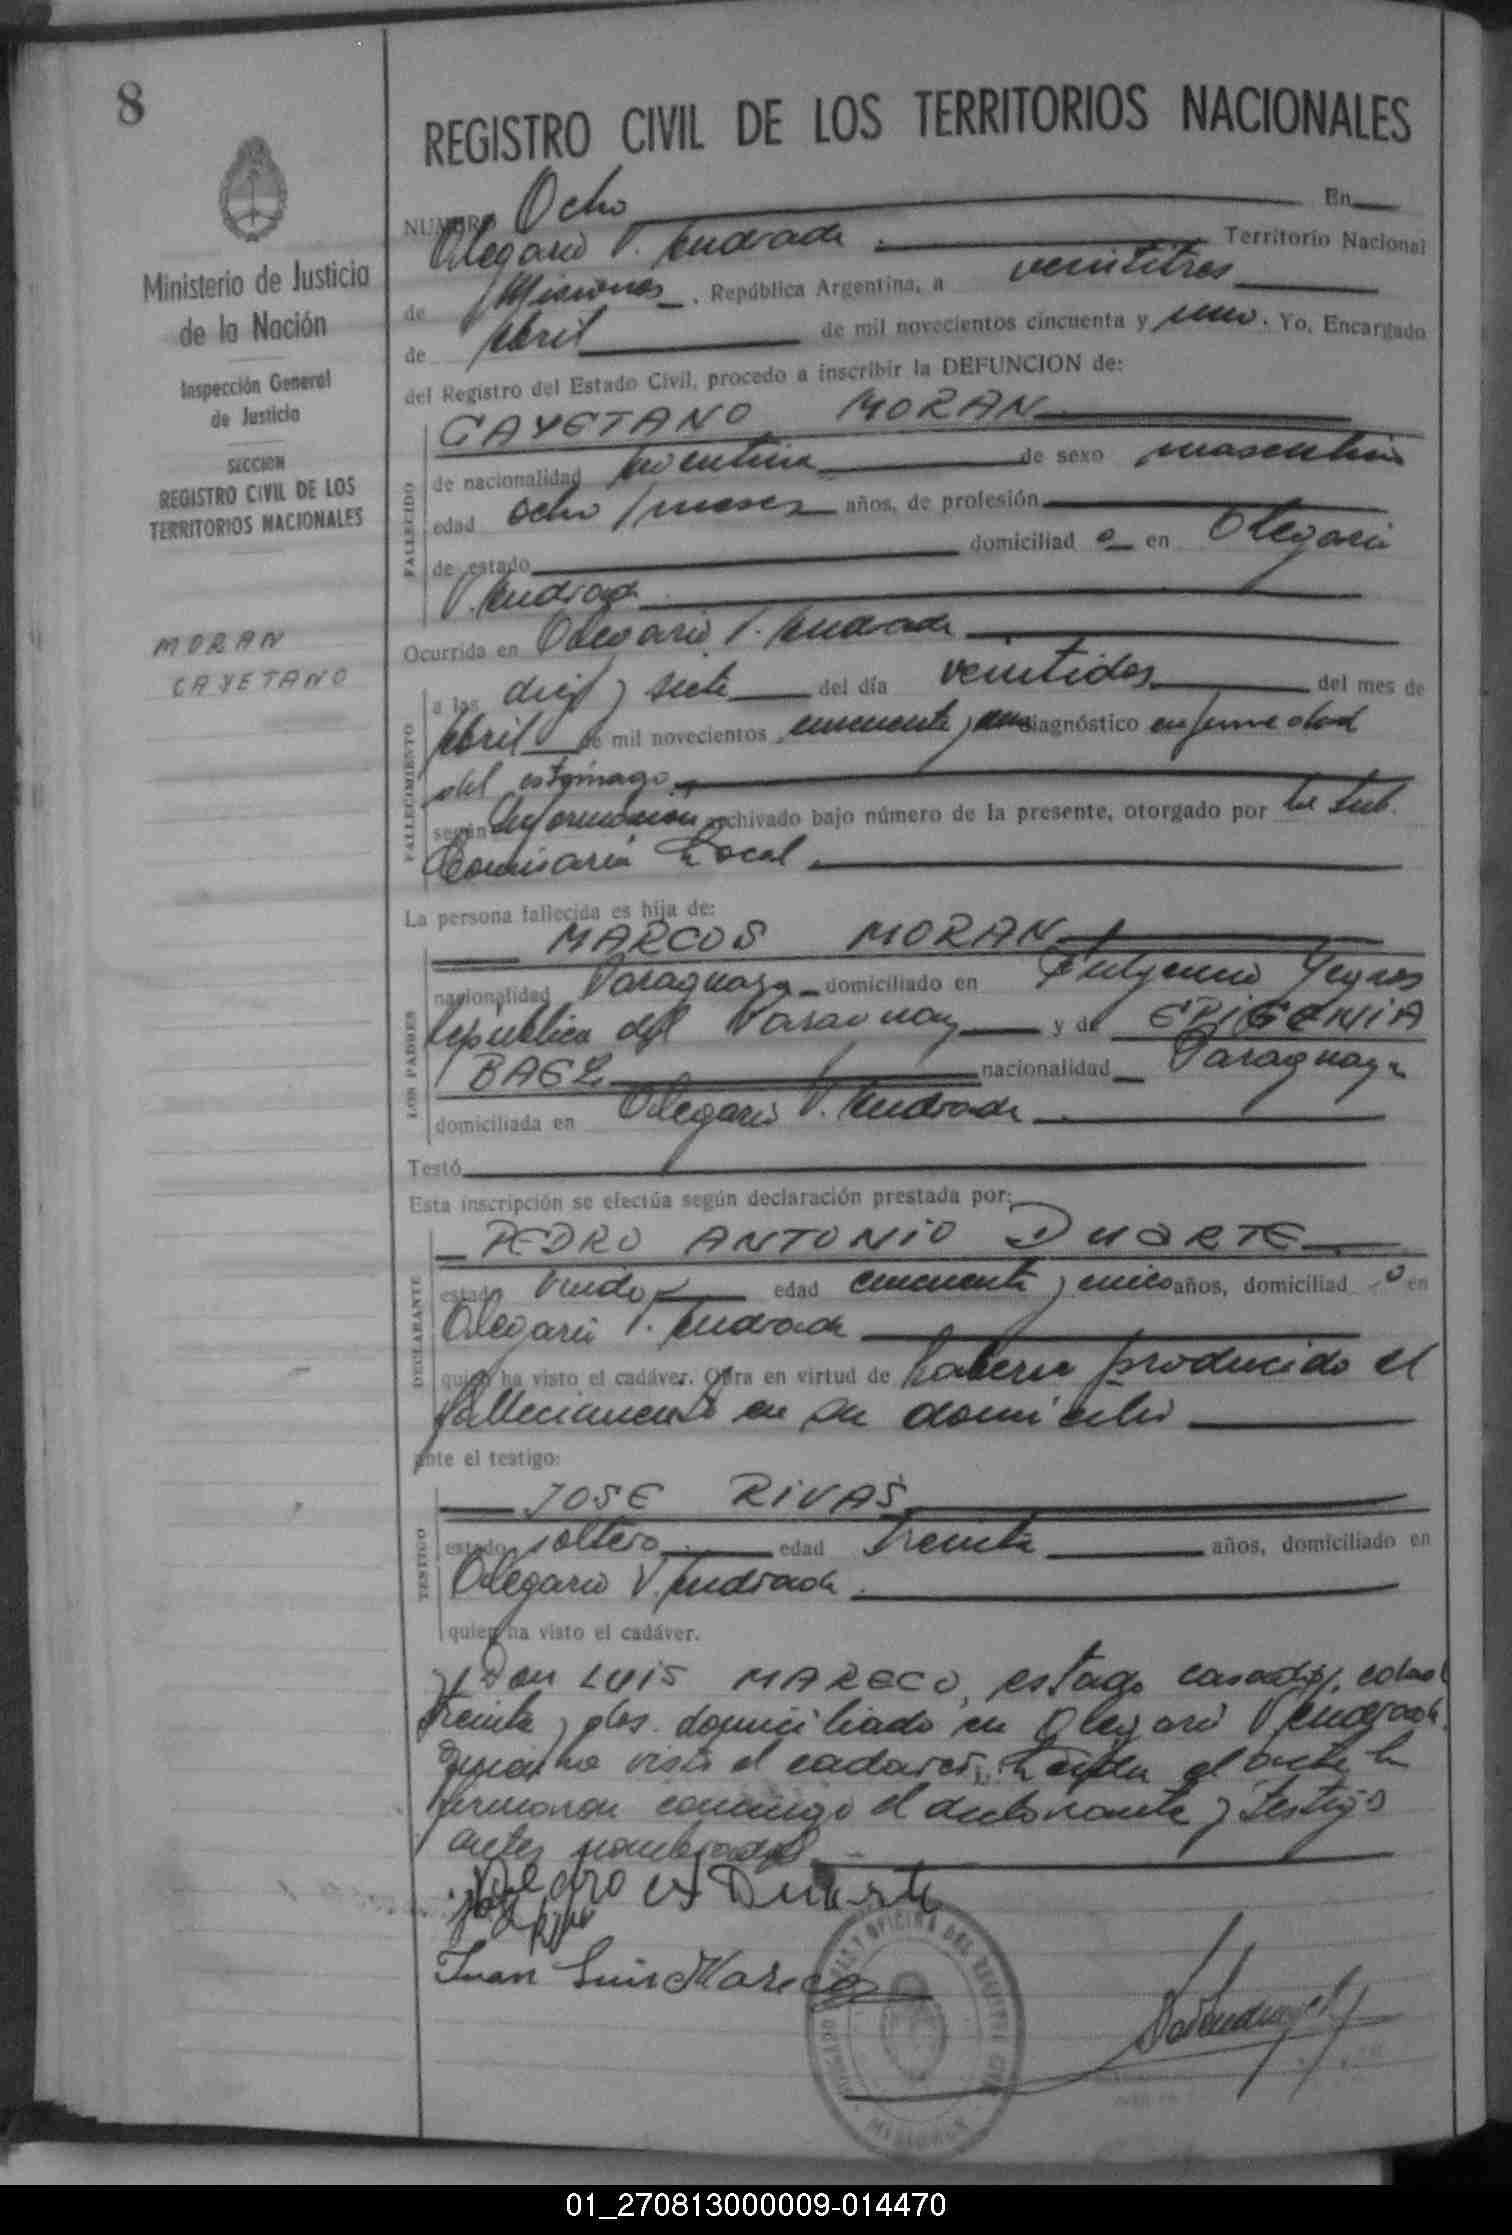 8
REGISTRO CIVIL DE LOS TERRITORIOS NACIONALES
Ministerio de Justicia
de la Nación
Inspección General
de Justicia
SECCION
REGISTRO CIVIL DE LOS
TERRITORIOS NACIONALES
MORAN
CAYETANO
NUMERO Ocho En
Olegario V. Andrade Territorio Nacional
de Misiones, República Argentina, a veintitres
de Abril de mil novecientos cincuenta y uno. Yo, Encargado
del Registro del Estado Civil, procedo a inscribir la DEFUNCION de:
CAYETANO MORAN
FALLECIDO
de nacionalidad Argentina de sexo masculino
edad ocho meses años, de profesión
de estado domiciliad o en Olegario
V. Andrade
Ocurrida en Olegario V. Andrade
FALLECIMIENTO
a las diez y siete del día veintidos del mes de
Abril de mil novecientos cincuenta y uno diagnóstico enfermedad
del estomago
según Información archivado bajo número de la presente, otorgado por la Sub.
Comisaria Local
La persona fallecida es hija de:
LOS PADRES
MARCOS MORAN
nacionalidad Paraguaya domiciliado en Fulgencio Yegros
Republica del Paraguay y de EPIGENIA
BAEZ nacionalidad Paraguaya
domiciliada en Olegario V. Andrade
Testó
Esta inscripción se efectúa según declaración prestada por:
DECLARANTE
PEDRO ANTONIO DUARTE
estado Viudo edad cincuenta y cinco años, domiciliad o en
Olegario V. Andrade
quien ha visto el cadáver. Obra en virtud de haberse producido el
fallecimiento en su domicilio
ante el testigo:
TESTIGO
JOSE RIVAS
estado soltero edad treinta años, domiciliado en
Olegario V. Andrade
quien ha visto el cadáver.
y Don LUIS MARECO, estado casado, edad
treinta y dos domiciliado en Olegario V Andrade
quien ha visto el cadaver. Leida el acta la
firmaron conmigo el declarante y testigos
antes nombrados
Pedro A Duarte
Juan Luis Mareco
MISIONES
01_270813000009-014470